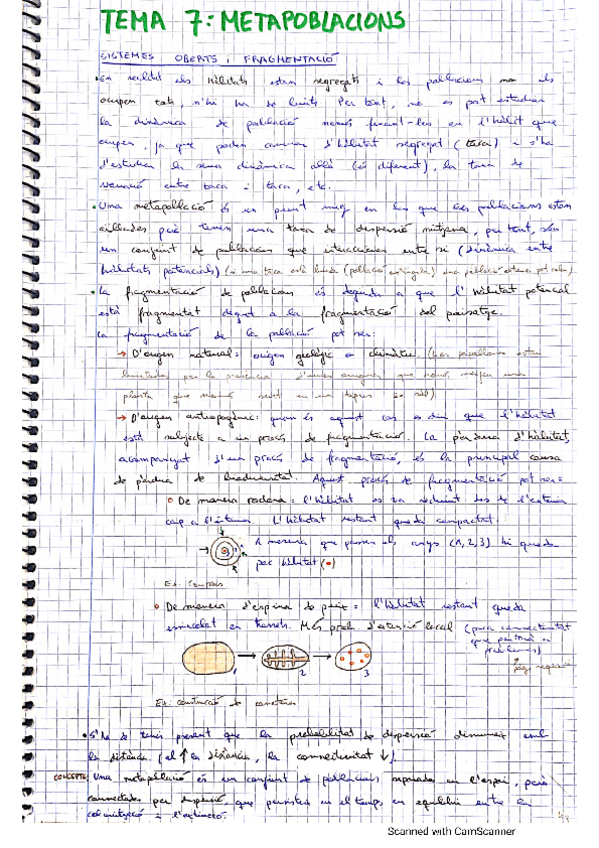 TEMA 7: METAPOBLACIONS
SISTEMES OBERTS i FRAGMENTACIÓ
• En realitat els hàbitats estan segregats i les poblacions no els
ocupen tots, n'hi ha de buits. Per tant, no es pot estudiar
la dinàmica de població només fixant-les en l'hàbitat que
ocupen, ja que poden a d'hàbitat segregat (taca) i s'ha
d'estudiar la seva dinàmica allà (és diferent), la taxa de
entre taca i taca, etc.
• Una metapoblació és un punt mig en les que les poblacions estan
aïllades però tenen una taxa de dispersió mitjana, per tant, són
un conjunt de poblacions que interaccionen entre si (dinàmica entre
hàbitats potencials) (si una taca està buida
• La fragmentació de poblacions és deguda a que l'hàbitat potencial
està fragmentat degut a la fragmentació del paisatge.
La fragmentació de la població pot ser:
→ D'origen natural: origen geològic o climàtic (les papallones estan
limitades per la presència que només
planta que només en un
→ D'origen antropogènic: quan és aquest cas es diu que l'hàbitat
està subjecte a un procés de fragmentació. La pèrdua d'hàbitat,
acompanyat d'un procés de fragmentació, és la principal causa
de pèrdua de biodiversitat. Aquest procés de fragmentació pot ser:
○ De manera rodona: l'hàbitat es va reduint des de l'exterior
cap a l'interior. L'hàbitat restant queda compactat.
A mesura que passen els anys (1,2,3) hi queda
poc hàbitat (•)
Ex:
○ De manera d'espina de peix: l'hàbitat restant queda
en trossos. Més prob. d'extinció local (
que
problemes)
1 2 3
pàg.
Ex: construcció de carreteres
• S'ha de tenir present que la probabilitat de dispersió disminueix amb
la distància. (al ↑ la distància, la connectivitat ↓)
CONCEPTE: Una metapoblació és un conjunt de poblacions separades en l'espai, però
connectades per dispersió, que persisteix en el temps en equilibri entre la
colonització i l'extinció.
Scanned with CamScanner